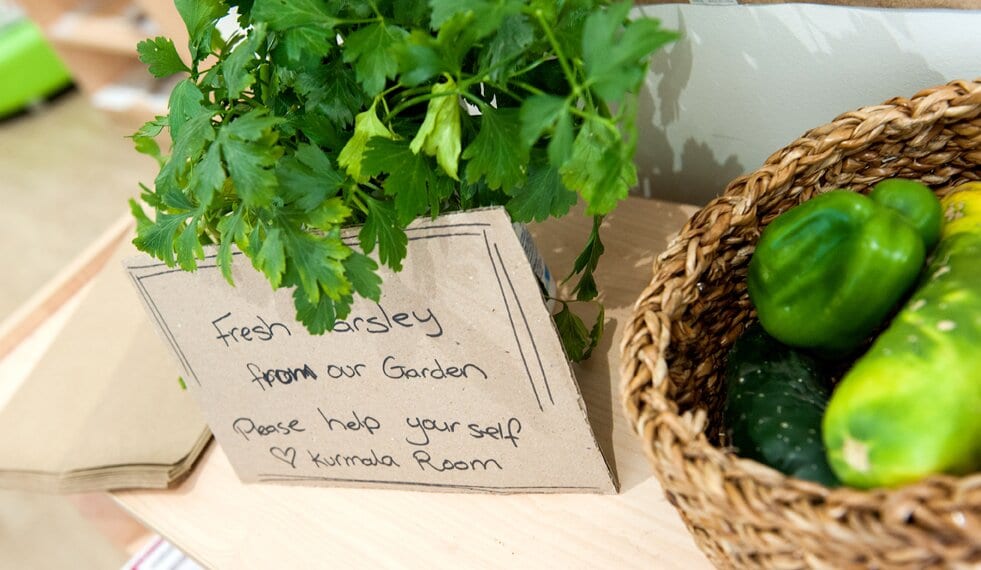 Fresh Parsley
from our Garden
Please help yourself
♡ Kurmala Room